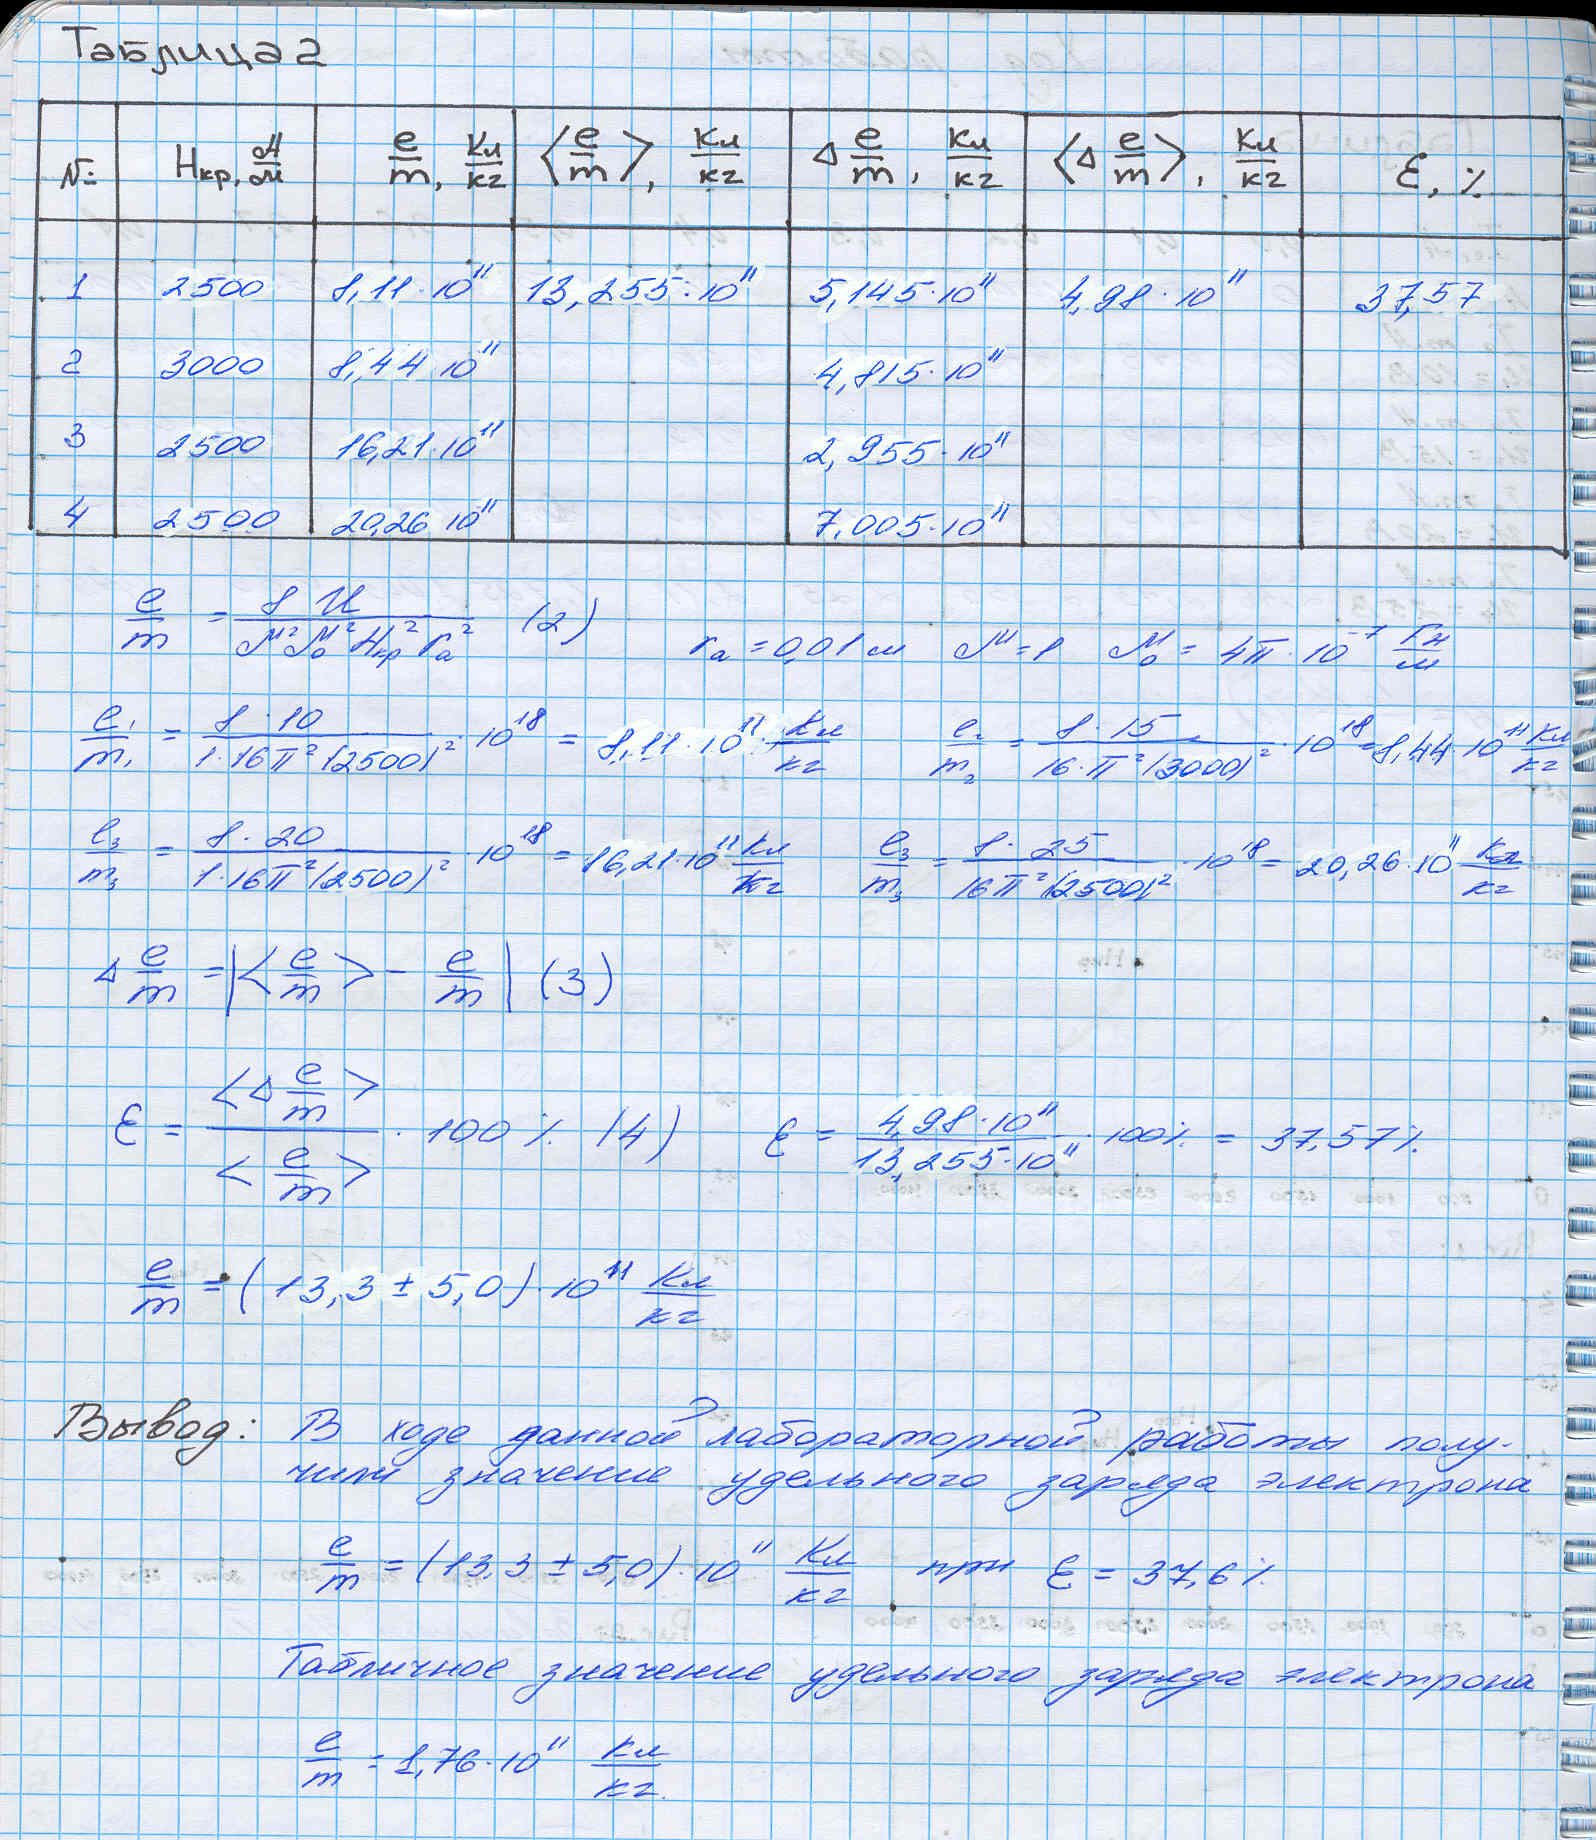 Таблица 2
№ Hкр, А/м e/m, Кл/кг ⟨e/m⟩, Кл/кг Δ e/m, Кл/кг ⟨Δ e/m⟩, Кл/кг ε, %
1 2500 8,11·10¹¹ 13,255·10¹¹ 5,145·10¹¹ 4,98·10¹¹ 37,57
2 3000 8,44·10¹¹ 4,815·10¹¹
3 2500 16,21·10¹¹ 2,955·10¹¹
4 2500 20,26·10¹¹ 7,005·10¹¹
e/m = 8U/(μ²μ₀²Hкр²rа²) (2) rа = 0,01 м μ = 1 μ₀ = 4π·10⁻⁷ Гн/м
e₁/m₁ = 8·10/(1·16π²(2500)²)·10¹⁸ = 8,11·10¹¹ Кл/кг e₂/m₂ = 8·15/(16·π²(3000)²)·10¹⁸ = 8,44·10¹¹ Кл/кг
e₃/m₃ = 8·20/(1·16π²(2500)²)·10¹⁸ = 16,21·10¹¹ Кл/кг e₃/m₃ = 8·25/(16π²(2500)²)·10¹⁸ = 20,26·10¹¹ Кл/кг
Δ e/m = |⟨e/m⟩ - e/m| (3)
ε = ⟨Δ e/m⟩/⟨e/m⟩ · 100% (4) ε = 4,98·10¹¹/13,255·10¹¹ · 100% = 37,57%
e/m = (13,3 ± 5,0)·10¹¹ Кл/кг
Вывод: В ходе данной лабораторной работы полу-
чили значение удельного заряда электрона
e/m = (13,3 ± 5,0)·10¹¹ Кл/кг при ε = 37,6%
Табличное значение удельного заряда электрона
e/m = 1,76·10¹¹ Кл/кг.